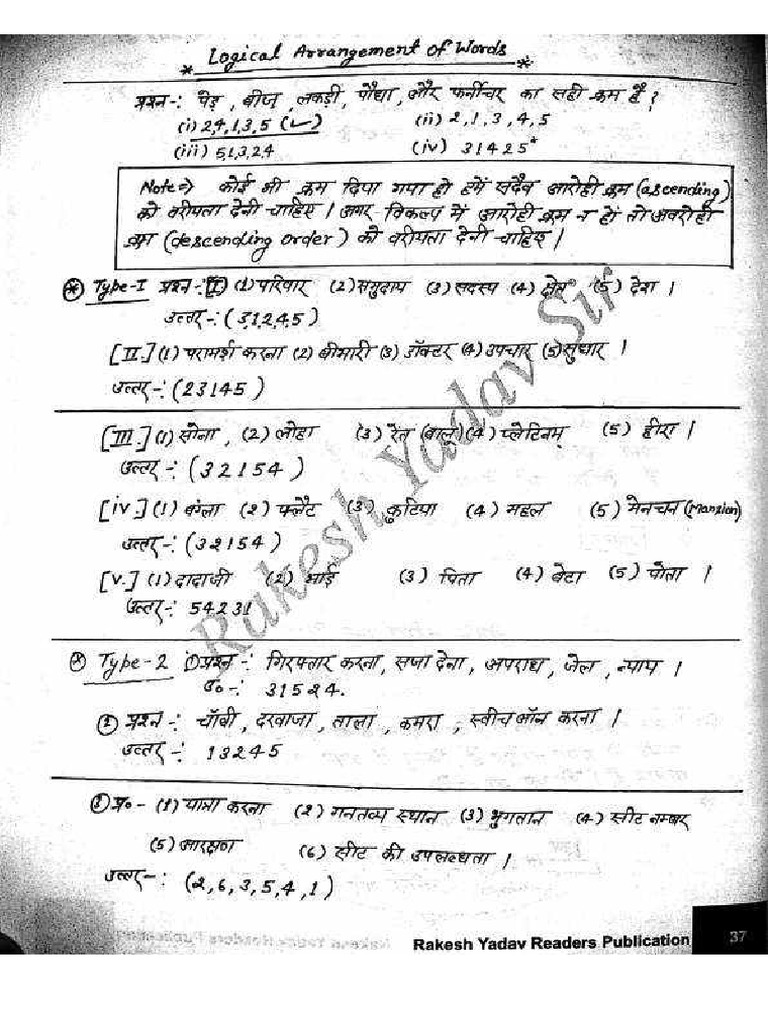 * Logical Arrangement of Words *
प्रश्न-: पेड़, बीज, लकड़ी, पौधा, और फर्नीचर का सही क्रम है?
(i) 2,4,1,3,5 (✓) (ii) 2,1,3,4,5
(iii) 5,1,3,2,4 (iv) 31425
Note⇒ कोई भी क्रम दिया गया हो हमें सदैव आरोही क्रम (ascending)
को वरीयता देनी चाहिए। अगर विकल्प में आरोही क्रम न हों तो अवरोही
क्रम (descending order) को वरीयता देनी चाहिए।
* Type-I प्रश्न-: [I] (1) परिवार (2) समुदाय (3) सदस्य (4) क्षेत्र (5) देश।
उत्तर-: (3,1,2,4,5)
[II.] (1) परामर्श करना (2) बीमारी (3) डॉक्टर (4) उपचार (5) सुधार।
उत्तर-: (23145)
[III.] (1) सोना, (2) लोहा (3) रेत (बालू) (4) प्लेटिनम् (5) हीरा।
उत्तर-: (32154)
[iv.] (1) बंगला (2) फ्लैट (3) कुटिया (4) महल (5) मेनचन (Manzion)
उत्तर-: (32154)
[v.] (1) दादाजी (2) भाई (3) पिता (4) बेटा (5) पोता।
उत्तर-: 54231
* Type-2 ① प्रश्न-: गिरफ्तार करना, सजा देना, अपराध, जेल, न्याय।
उ०-: 31524.
② प्रश्न-: चॉबी, दरवाजा, ताला, कमरा, स्वीच ऑन करना।
उत्तर-: 13245
③ प्र०- (1) यात्रा करना (2) गनतव्य स्थान (3) भुगतान (4) सीट नम्बर
(5) आरक्षण (6) सीट की उपलब्धता।
उत्तर-: (2,6,3,5,4,1)
Rakesh Yadav Sir
Rakesh Yadav Readers Publication 37